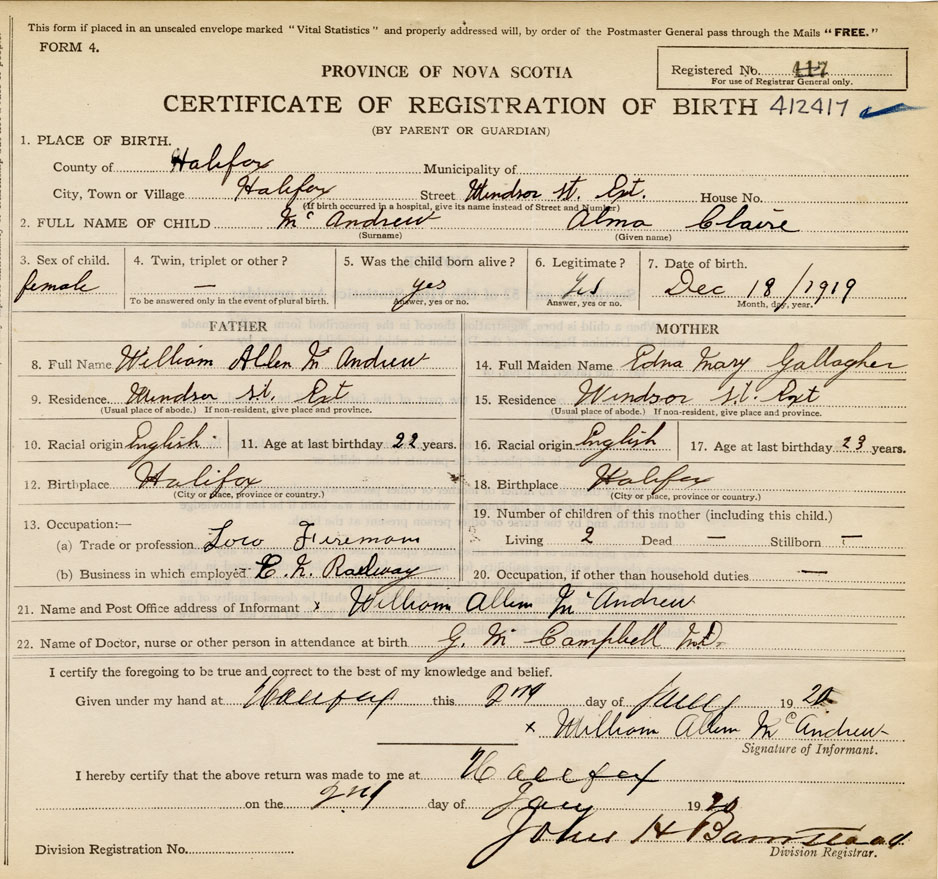 This form if placed in an unscaled envelope marked "Vital Statistics" and properly addressed will, by order of the Postmaster General pass through the Mails "FREE."
FORM 4.
PROVINCE OF NOVA SCOTIA
Registered No. 117
For use of Registrar General only.
CERTIFICATE OF REGISTRATION OF BIRTH 412417
(BY PARENT OR GUARDIAN)
1. PLACE OF BIRTH.
County of Halifax Municipality of
City, Town or Village Halifax Street Windsor St. Ext. House No.
(If birth occurred in a hospital, give its name instead of Street and Number)
2. FULL NAME OF CHILD Mc Andrew Alma Claire
(Surname) (Given name)
3. Sex of child. 4. Twin, triplet or other? 5. Was the child born alive? 6. Legitimate? 7. Date of birth.
female — yes Yes Dec 18/1919
To be answered only in the event of plural birth. Answer, yes or no. Answer, yes or no. Month, day, year.
FATHER MOTHER
8. Full Name William Allen Mc Andrew 14. Full Maiden Name Edna Mary Gallagher
9. Residence Windsor St. Ext 15. Residence Windsor St. Ext
(Usual place of abode.) If non-resident, give place and province. (Usual place of abode.) If non-resident, give place and province.
10. Racial origin English 11. Age at last birthday 22 years. 16. Racial origin English 17. Age at last birthday 23 years.
12. Birthplace Halifax 18. Birthplace Halifax
(City or place, province or country.) (City or place, province or country.)
13. Occupation:— 19. Number of children of this mother (including this child.)
(a) Trade or profession Loco Fireman Living 2 Dead — Stillborn —
(b) Business in which employed C. N. Railway 20. Occupation, if other than household duties —
21. Name and Post Office address of Informant x William Allen Mc Andrew
22. Name of Doctor, nurse or other person in attendance at birth G. M Campbell M.D.
I certify the foregoing to be true and correct to the best of my knowledge and belief.
Given under my hand at Halifax this 2nd day of Jany 1920
x William Allen Mc Andrew
Signature of Informant.
I hereby certify that the above return was made to me at Halifax
on the 2nd day of Jany 1920
John H Barnstead
Division Registration No. Division Registrar.